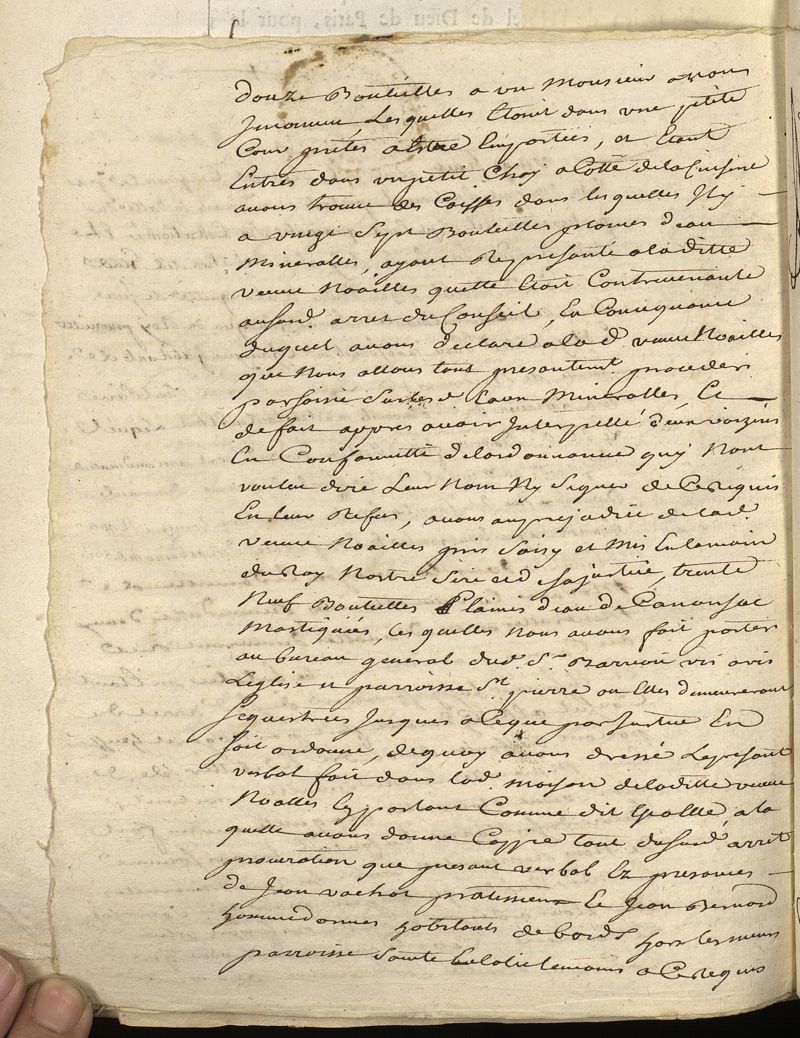 douze Bouteilles a un Monsieur a nous
Inconnu, Lesquelles Etoit dans une petite
Cour pretes a Estre Emportées, et Etant
Entrés dans un petit Chay a Cotté de la Cuisine
avons trouvé des Caisses dans lesquelles Il y
a vingt Sept Bouteilles plaines d'eau
Mineralles, ayant Representé a laditte
veuve Noailles quelle Etoit Contrevenante
aususd. arret du Conseil, En Consequance
duquel avons declaré a lad. veuve Noailles
que Nous allons tout presentement proceder
par Saisie Surles d. Eaux Mineralles, Et
de fait appres avoir Interpellé deux voizins
En Conformitté de lordonnance quy Nont
voulu dire Leur Nom Ny Signer de Ce Requis
En leur Refus, avons au prejudice de lad.
veuve Noailles pris Saisy et Mis En la main
du Roy Nostre Sire et de sa justice, trente
Neuf Bouteilles Plaines d'eau de
Mastiquées, les quelles Nous avons fait porter
au bureau general dud. Sr. vis avis
Leglise et parroisse St. pierre ou Elles demeureront
Sequestrées Jusques a Ceque par Justice En
Soit ordonné, de quoy avons dressé Le present
verbal fait dans lad. maison de laditte veuve
Noailles Ey portant Comme dit Est a Elle, a la
quelle avons donné Coppie tout dususd. arret
procuration que present verbal Ez presences
de Jean vachot praticien Et Jean Bernard
hommes donnes habitants de bord. hors les murs
parroisse Sainte temoins a Ce Requis